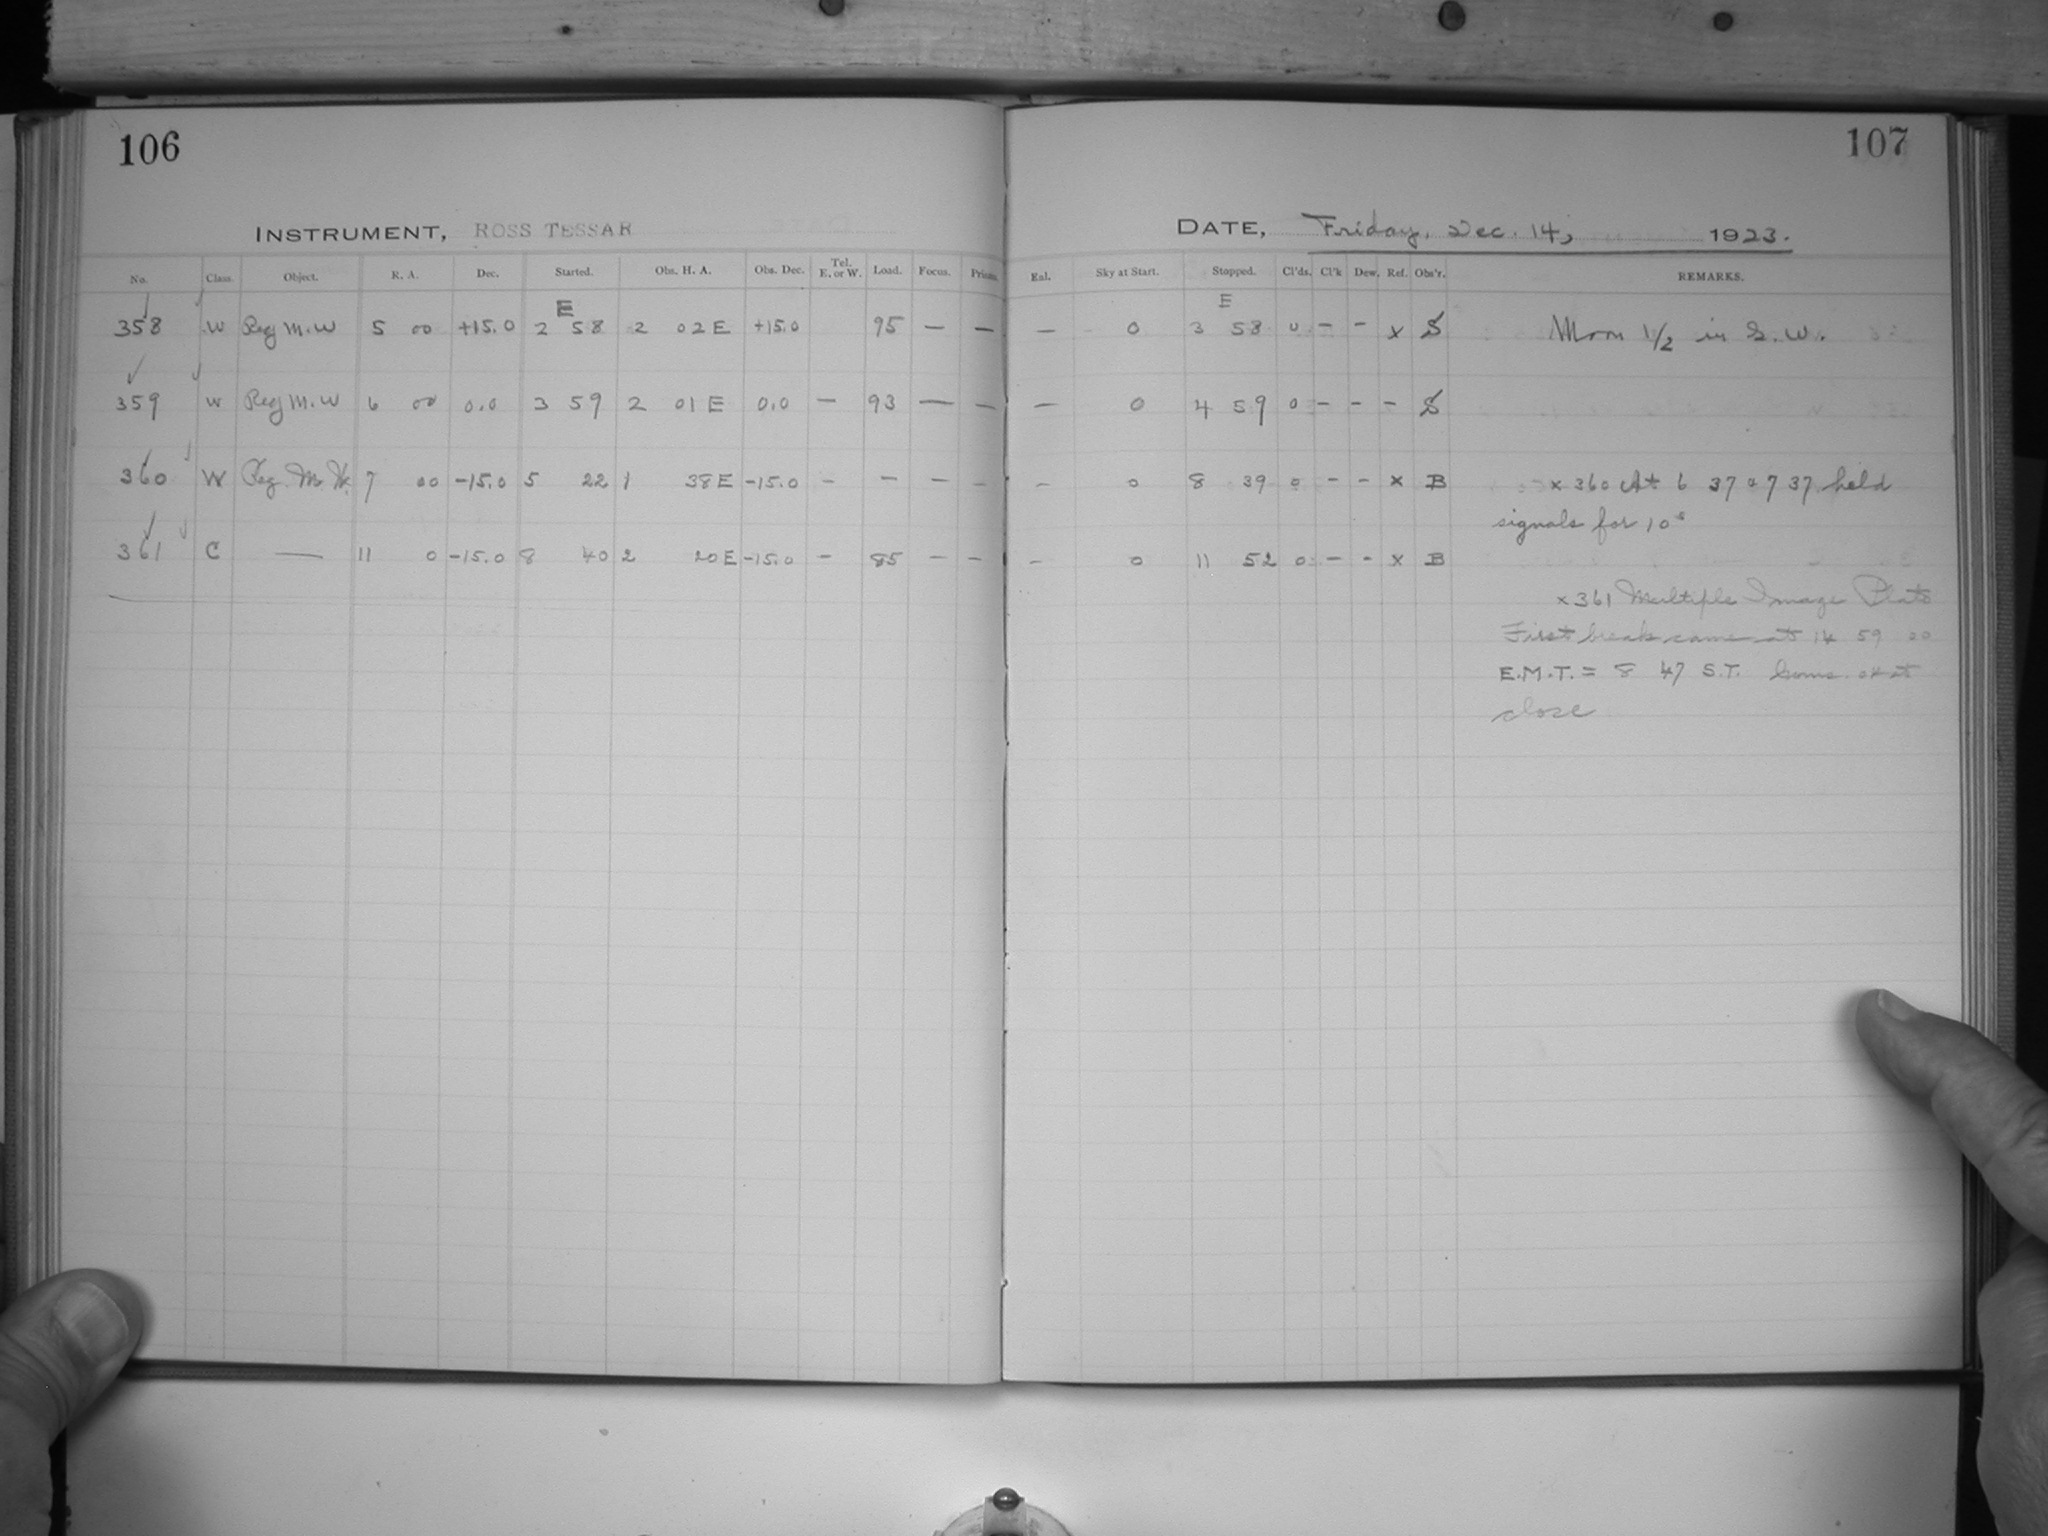 106
INSTRUMENT, ROSS TESSAR
No. Class. Object. R. A. Dec. Started. Obs. H. A. Obs. Dec. Tel. E. or W. Load. Focus. Prisms.
E
358 W Reg M.W 5 00 +15.0 2 58 2 02 E +15.0 95 — —
359 W Reg M.W 6 00 0.0 3 59 2 01 E 0.0 — 93 — —
360 W Reg. M. W. 7 00 -15.0 5 22 1 38 E -15.0 - - - -
361 C — 11 0 -15.0 8 40 2 20 E -15.0 - 85 - -
107
DATE, Friday, Dec. 14, 1923.
Enl. Sky at Start. Stopped. Cl'ds. Cl'k Dew. Ref. Obs'r. REMARKS.
E
— 0 3 58 0 - - x S Moon 1/2 in S.W.
— 0 4 59 0 - - - S
- 0 8 39 0 - - x B x 360 At 6 37 & 7 37 held
signals for 10s
- 0 11 52 0 - - x B
x 361 Multiple Image Plate
First break came at 14 59 00
E.M.T. = 8 47 S.T. at
close